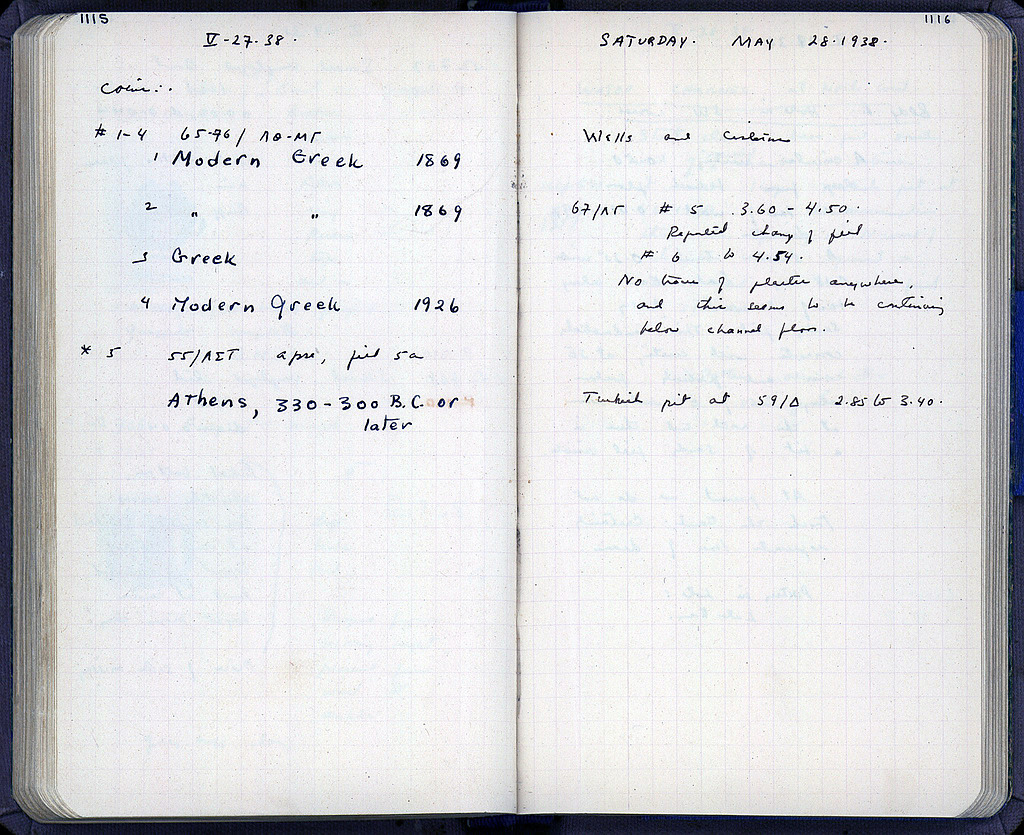 1115
V-27-38.
Coins:.
# 1-4 65-76/ ΛΘ-ΜΓ
1 Modern Greek 1869
2 " " 1869
3 Greek
4 Modern Greek 1926
* 5 55/ΛΣΤ apse, fill 5a
Athens, 330-300 B.C. or
later
1116
SATURDAY. MAY 28.1938.
Wells and Cisterns
67/ΛΓ # 5 3.60 - 4.50.
Reported change of fill
# 6 to 4.54.
No trace of plaster anywhere,
and this seems to be continuing
below channel floor.
Turkish pit at 59/Δ 2.85 to 3.40.